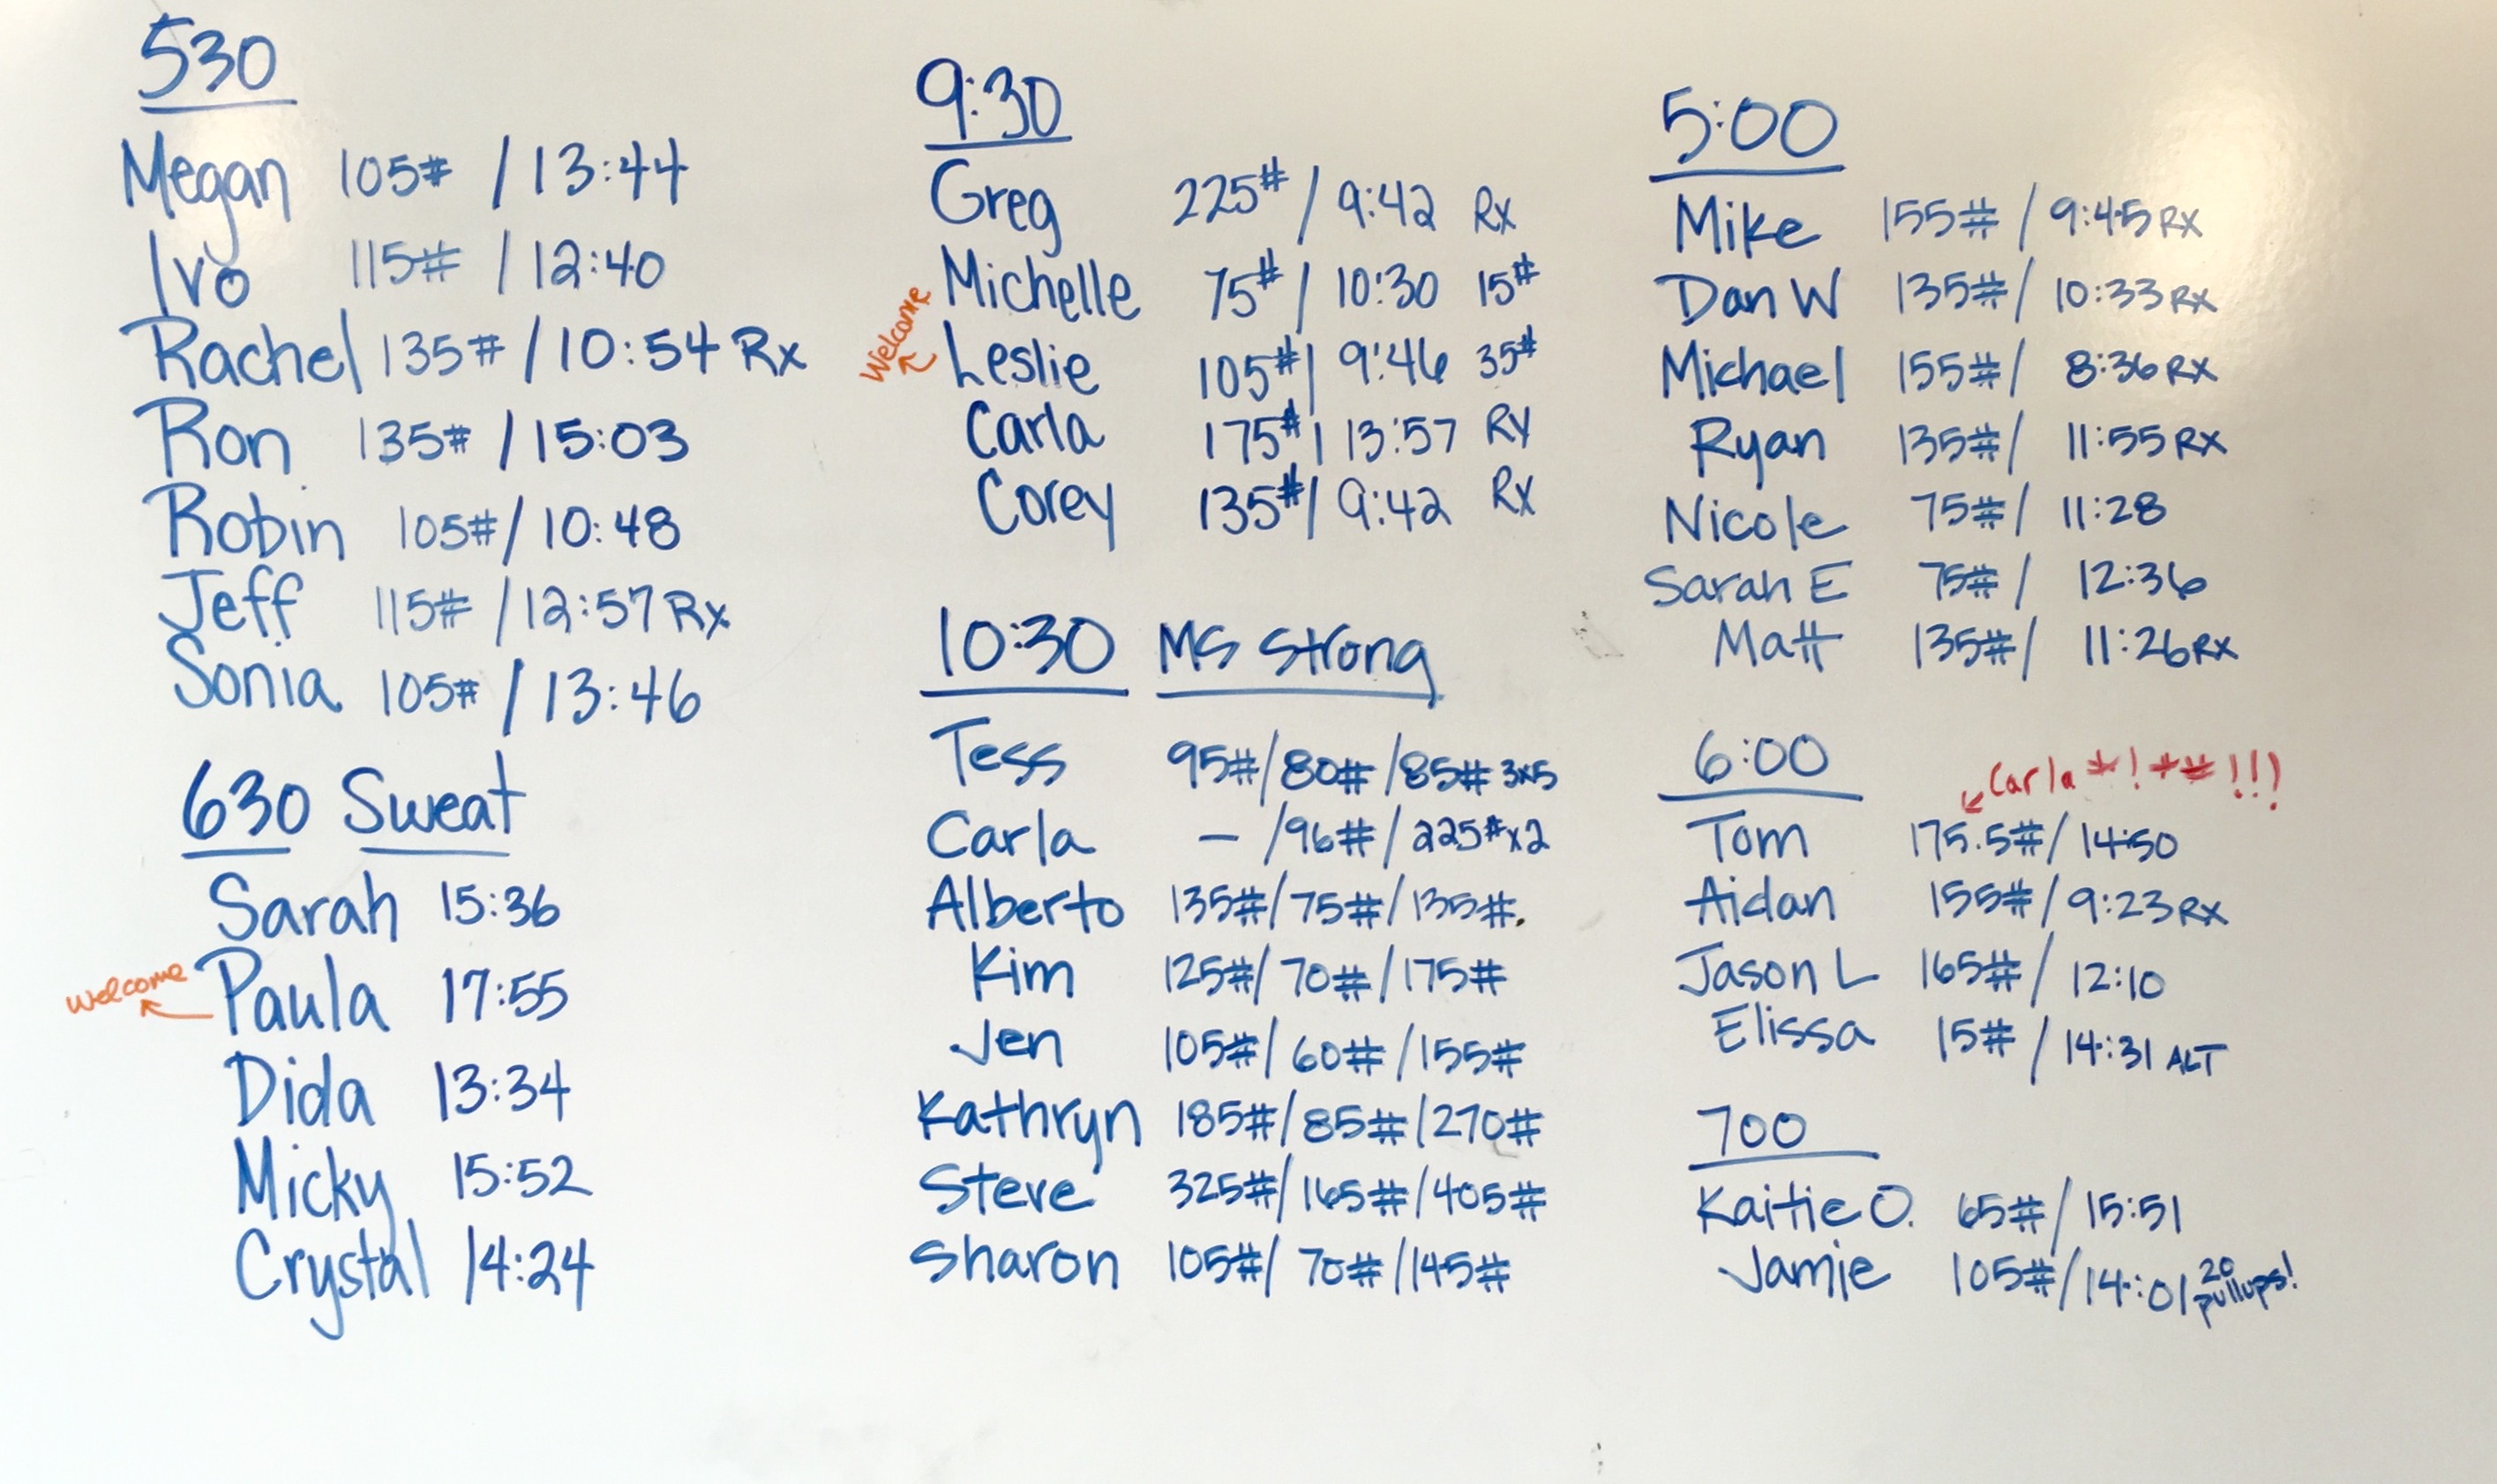 530
Megan 105# / 13:44
Ivo 115# / 12:40
Rachel 135# / 10:54 Rx
Ron 135# / 15:03
Robin 105# / 10:48
Jeff 115# / 12:57 Rx
Sonia 105# / 13:46
630 Sweat
Sarah 15:36
Welcome
Paula 17:55
Dida 13:34
Micky 15:52
Crystal 14:24
9:30
Greg 225# / 9:42 Rx
Michelle 75# / 10:30 15#
Welcome
Leslie 105# | 9:46 35#
Carla 175# | 13:57 RY
Corey 135# / 9:42 Rx
10:30 MS Strong
Tess 95# / 80# / 85# 3x5
Carla — / 96# / 225# x2
Alberto 135# / 75# / 135#.
Kim 125# / 70# / 175#
Jen 105# / 60# / 155#
Kathryn 185# / 85# / 270#
Steve 325# / 165# / 405#
Sharon 105# / 70# / 145#
5:00
Mike 155# / 9:45 RX
Dan W 135# / 10:33 RX
Michael 155# / 8:36 RX
Ryan 135# / 11:55 RX
Nicole 75# / 11:28
Sarah E 75# / 12:36
Matt 135# / 11:26 RX
6:00
Carla *!*# !!!
Tom 175.5# / 14:50
Aidan 155# / 9:23 RX
Jason L 165# / 12:10
Elissa 15# / 14:31 ALT
700
Kaitie O. 65# / 15:51
Jamie 105# / 14:01 20 pullups!